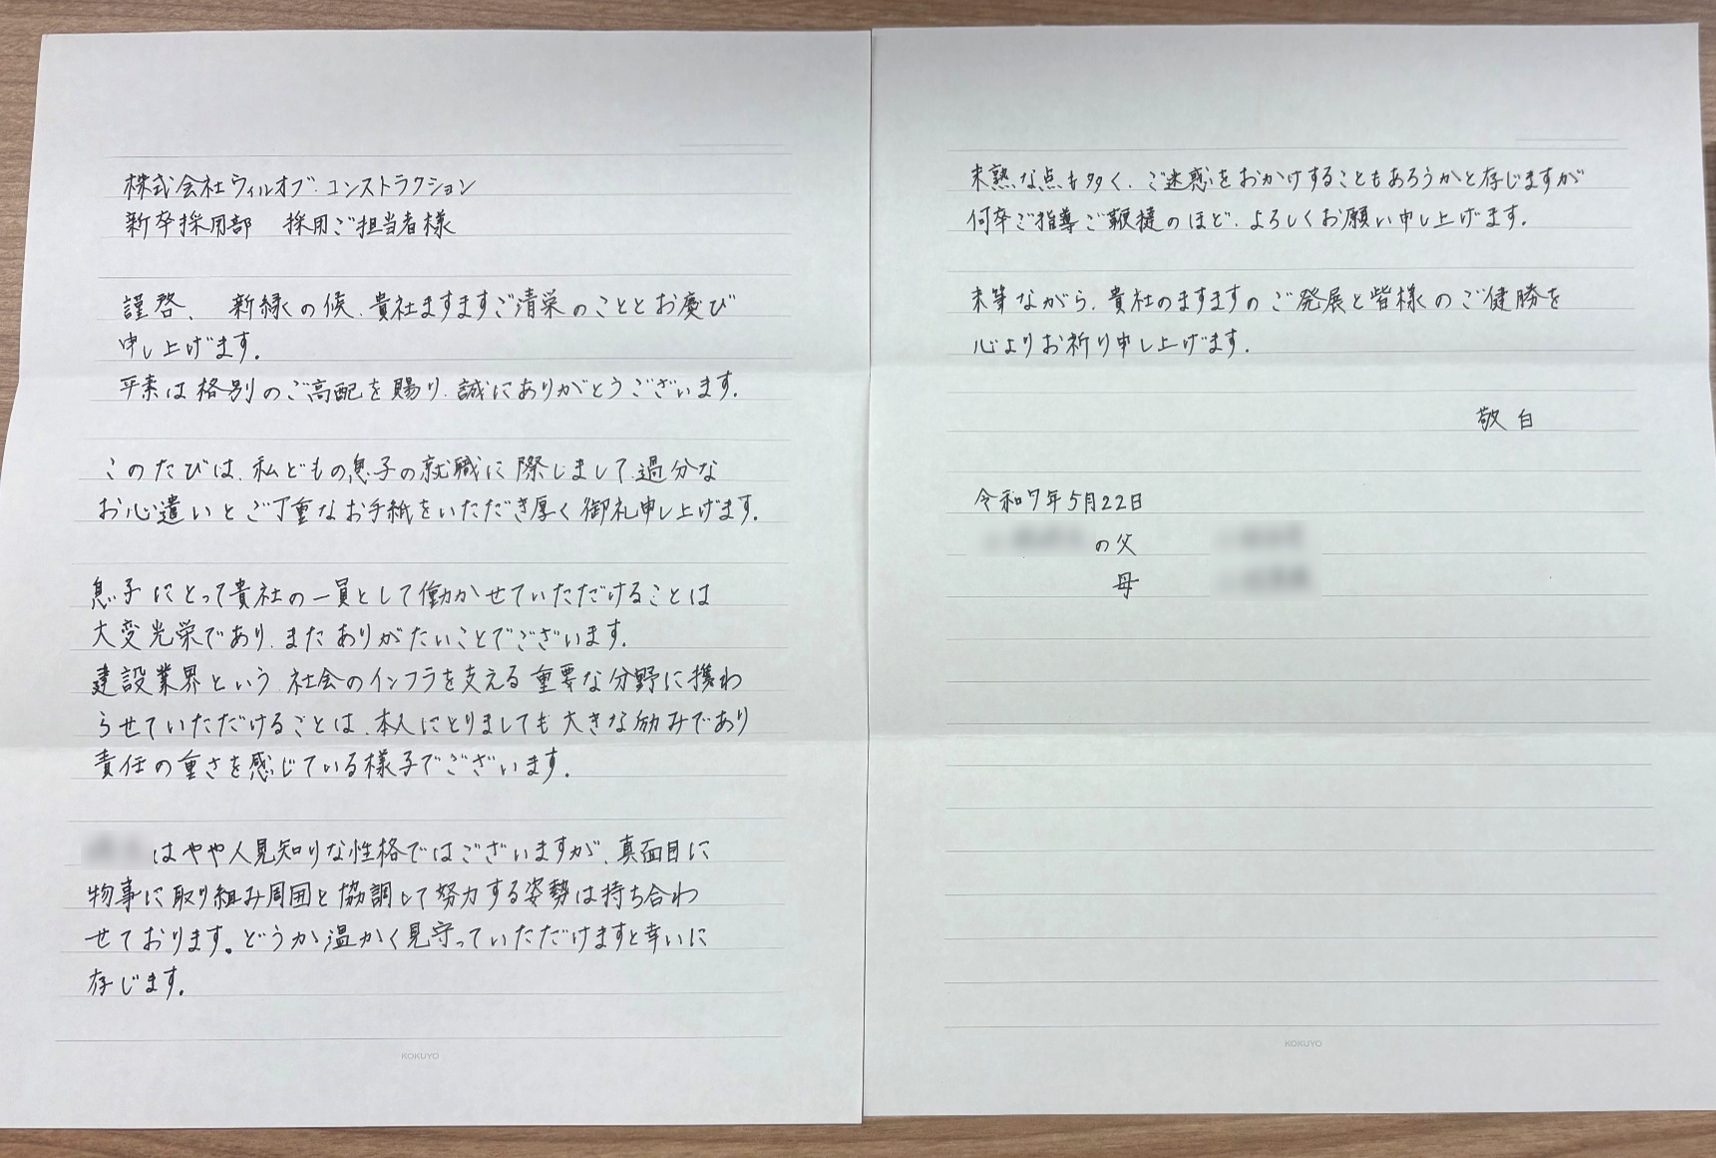 株式会社ウィルオブ・コンストラクション
新卒採用部　採用ご担当者様
謹啓、　新緑の候、貴社ますますご清栄のこととお慶び
申し上げます。
平素は格別のご高配を賜り、誠にありがとうございます。
このたびは、私どもの息子の就職に際しまして、過分な
お心遣いとご丁重なお手紙をいただき厚く御礼申し上げます。
息子にとって貴社の一員として働かせていただけることは
大変光栄であり、またありがたいことでございます。
建設業界という、社会のインフラを支える重要な分野に携わ
らせていただけることは、本人にとりましても大きな励みであり
責任の重さを感じている様子でございます。
はやや人見知りな性格ではございますが、真面目に
物事に取り組み周囲と協調して努力する姿勢は持ち合わ
せております。どうか温かく見守っていただけますと幸いに
存じます。
KOKUYO
未熟な点も多く、ご迷惑をおかけすることもあろうかと存じますが
何卒ご指導ご鞭撻のほど、よろしくお願い申し上げます。
末筆ながら、貴社のますますのご発展と皆様のご健勝を
心よりお祈り申し上げます。
敬白
令和7年5月22日
の父
母
KOKUYO